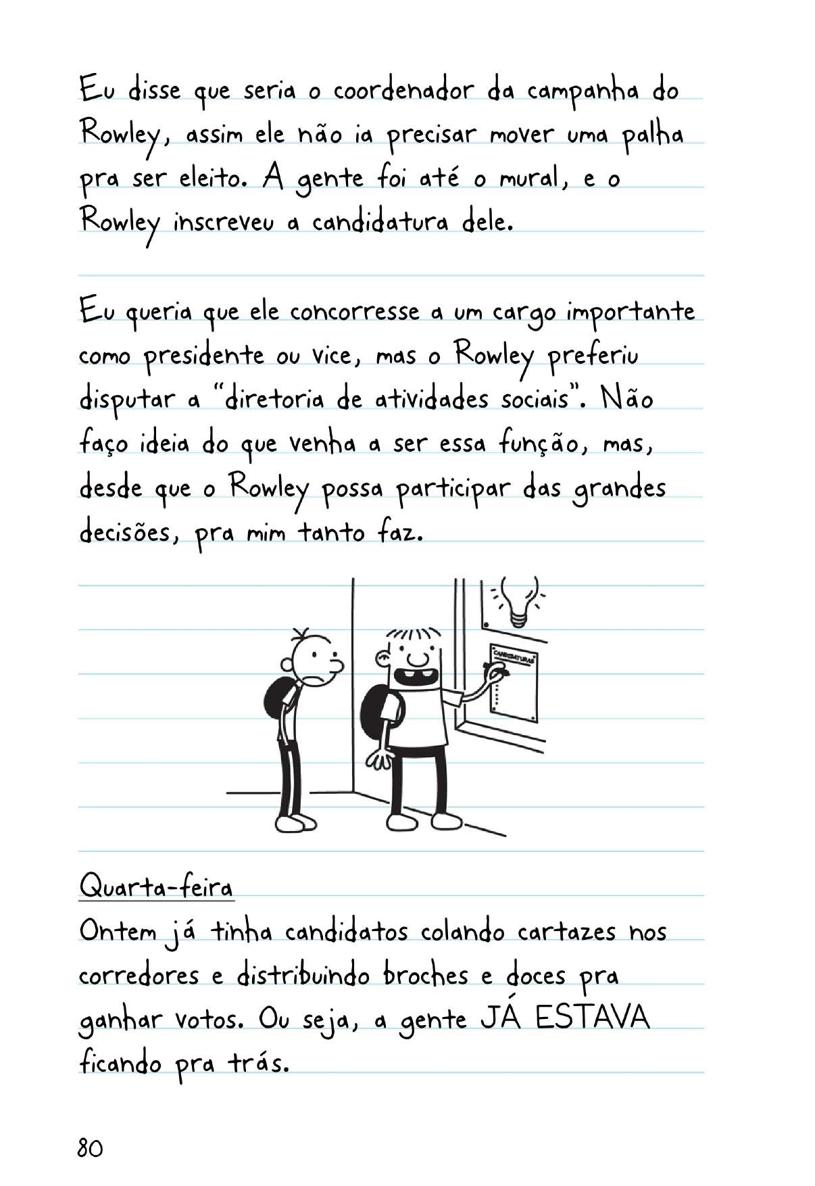 Eu disse que seria o coordenador da campanha do
Rowley, assim ele não ia precisar mover uma palha
pra ser eleito. A gente foi até o mural, e o
Rowley inscreveu a candidatura dele.
Eu queria que ele concorresse a um cargo importante
como presidente ou vice, mas o Rowley preferiu
disputar a “diretoria de atividades sociais”. Não
faço ideia do que venha a ser essa função, mas,
desde que o Rowley possa participar das grandes
decisões, pra mim tanto faz.
CANDIDATURAS
Quarta-feira
Ontem já tinha candidatos colando cartazes nos
corredores e distribuindo broches e doces pra
ganhar votos. Ou seja, a gente JÁ ESTAVA
ficando pra trás.
80